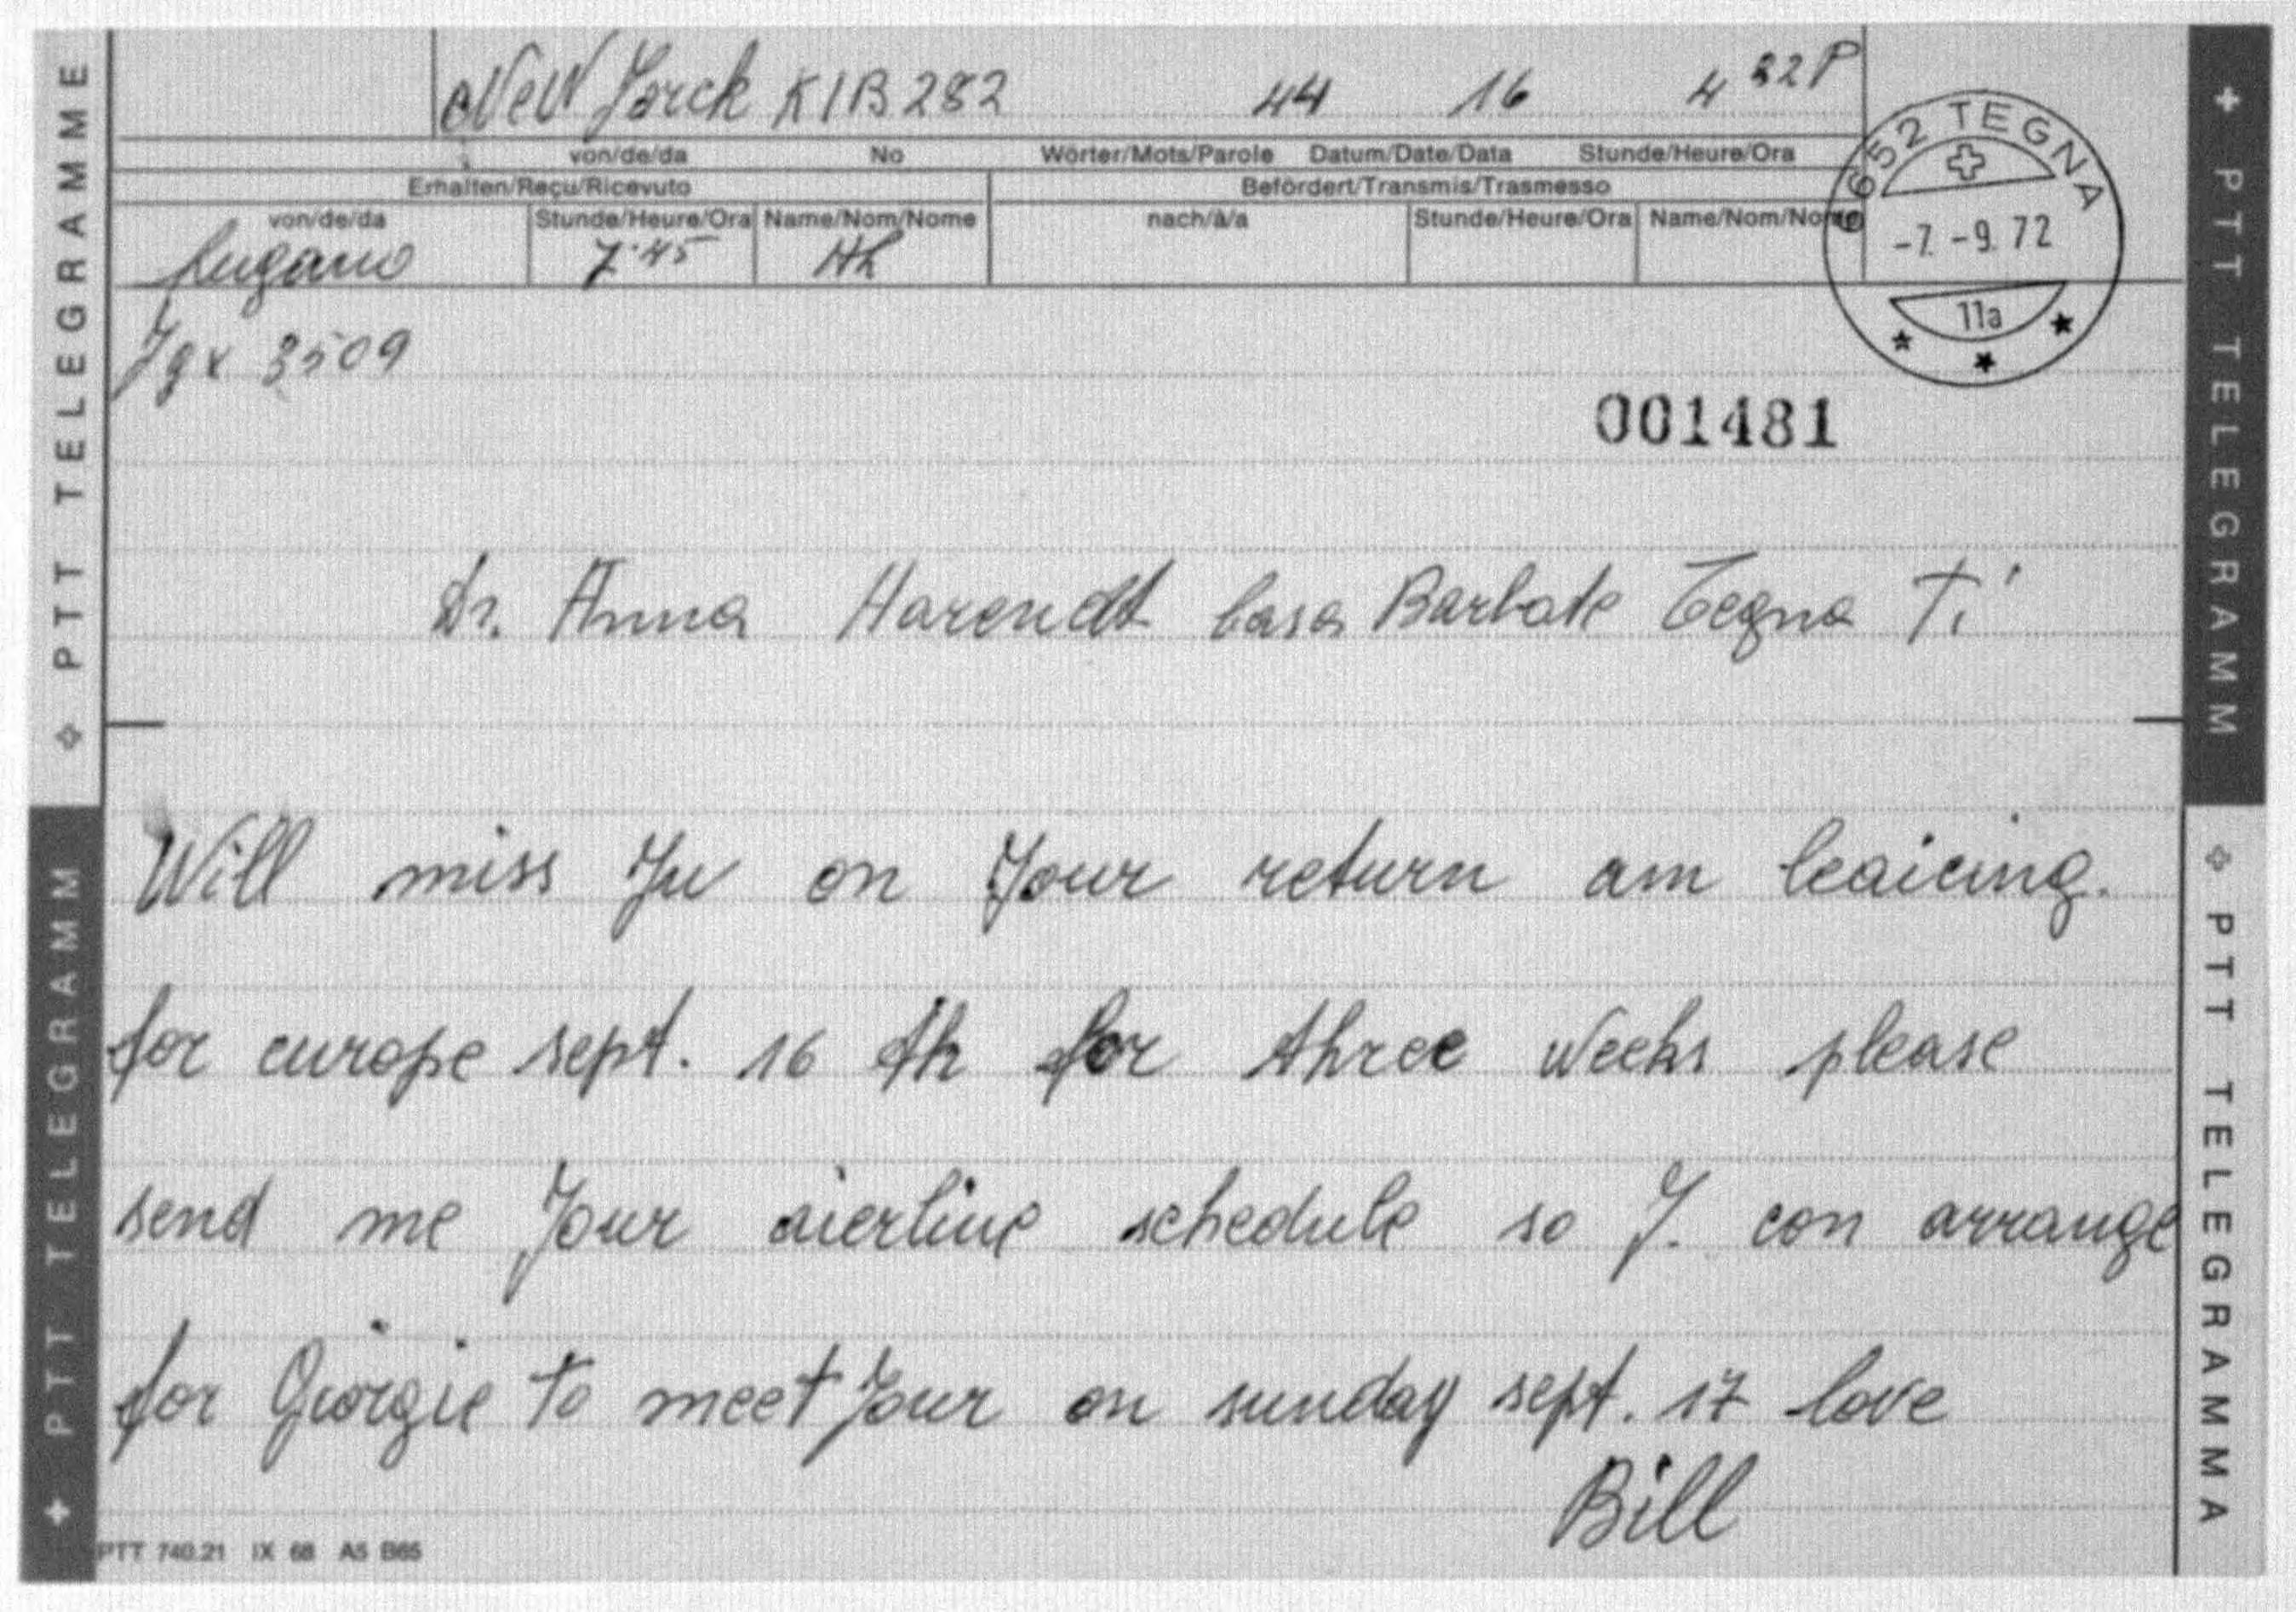 PTT TELEGRAMME
PTT TELEGRAMM
New Yorck K1B282 44 16 4 22P
von/de/da No Wörter/Mots/Parole Datum/Date/Data Stunde/Heure/Ora
Erhalten/Reçu/Ricevuto Befördert/Transmis/Trasmesso
von/de/da Stunde/Heure/Ora Name/Nom/Nome nach/à/a Stunde/Heure/Ora Name/Nom/Nome
Lugano 7.45
3509
6652 TEGNA
-7.-9.72
11a
001481
Dr. Anna Harendt Casa Barbate Tegna Ti
Will miss Yu on Your return am leaicing.
for europe sept. 16 th for three weeks please
send me Your aierline schedule so I. con arrange
for Giorgie to meet Your on sunday sept. 17 love
Bill
PTT 740.21 IX 68 A5 B65
PTT TELEGRAMM
PTT TELEGRAMMA